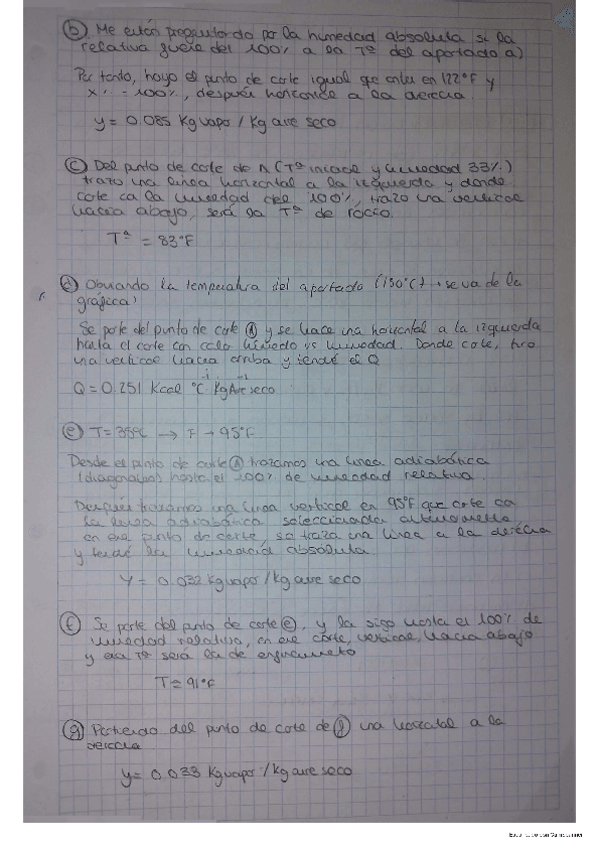 b) Me están preguntando por la humedad absoluta si la
relativa fuera del 100% a la Tª del apartado a)
Por tanto, hayo el punto de corte igual que antes en 122°F y
x% = 100%, después horizontal a la derecha.
y = 0.085 Kg vapor / Kg aire seco
c) Del punto de corte de A (Tª inicial y humedad 33%)
trazo una línea horizontal a la izquierda y donde
corte ca la humedad del 100%, trazo una vertical
hacia abajo, será la Tª de rocío.
Tª = 83°F
d) Obviando la temperatura del apartado (150°C) → se va de la
gráfica)
Se parte del punto de corte A y se hace una horizontal a la izquierda
hasta el corte con calor húmedo vs humedad. Donde corte, tiro
una vertical hacia arriba y tendré el Q
Q = 0.251 Kcal °C⁻¹ Kg⁻¹ Aire seco
e) T = 35°C → F → 95°F
Desde el punto de corte A trazamos una línea adiabática
(diagonales) hasta el 100% de humedad relativa.
Después trazamos una línea vertical en 95°F que corte ca
la línea adiabática seleccionada anteriormente,
en ese punto de corte, se traza una línea a la derecha
y tendré la humedad absoluta.
Y = 0.032 Kg vapor / kg aire seco
f) Se parte del punto de corte e, y la sigo hasta el 100% de
humedad relativa, en ese corte, vertical, hacia abajo
y esa Tª será la de enfriamiento
T = 91°F
g) Partiendo del punto de corte de f) una horizontal a la
derecha
y = 0.033 Kg vapor / kg aire seco